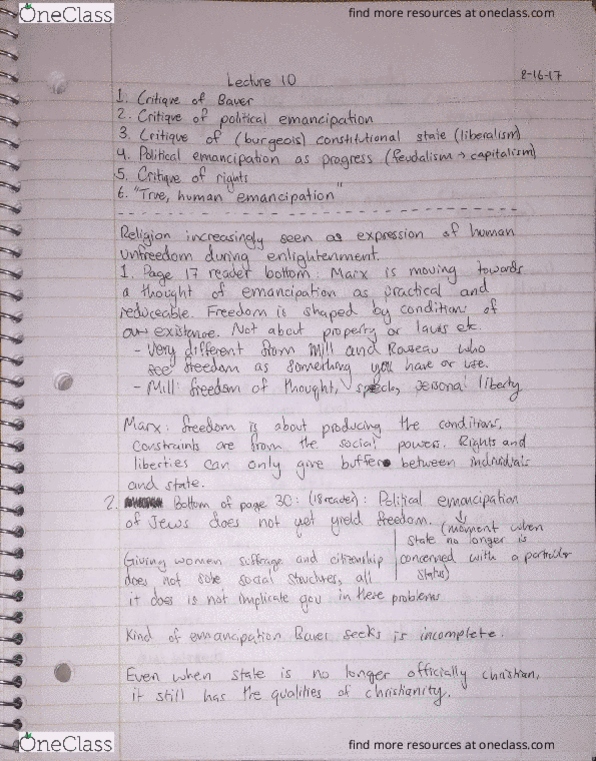 OneClass
find more resources at oneclass.com
Lecture 10
8-16-17
1. Critique of Baver
2. Critique of political emancipation
3. Critique of (burgeois) constitutional state (liberalism)
4. Political emancipation as progress (feudalism → capitalism)
5. Critique of rights
6. "True, human emancipation"
Religion increasingly seen as expression of human
unfreedom during enlightenment.
1. Page 17 reader bottom: Marx is moving towards
a thought of emancipation as practical and
reduceable. Freedom is shaped by conditions of
our existence. Not about property or laws etc.
- Very different from Mill and Rouseau who
see freedom as something you have or use.
- Mill: freedom of thought, speech, personal liberty
Marx: freedom is about producing the conditions,
constraints are from the social powers. Rights and
liberties can only give buffer between individuals
and state.
2. Bottom of page 30: (18 reader): Political emancipation
of Jews does not yet yield freedom. (moment when
state no longer is
Giving women suffrage and citizenship
concerned with a particular
does not solve social structures, all
status)
it does is not implicate gov in these problems
Kind of emancipation Baver seeks is incomplete.
Even when state is no longer officially christian,
it still has the qualities of christianity.
OneClass
find more resources at oneclass.com